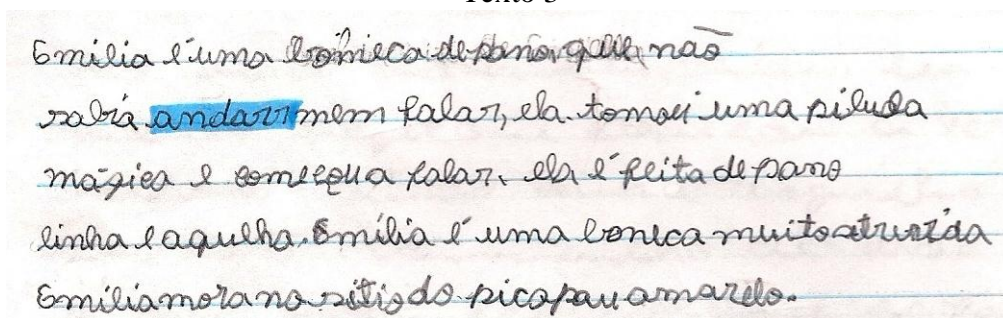 Texto 3
Emilia é uma boneca de pano, que não
sabia andarr mem falar, ela tomou uma piluda
mágica e começou a falar, ela é feita de pano
linha e agulha. Emília é uma boneca muito atrivída
Emilia mora no sitio do picapau amarelo.